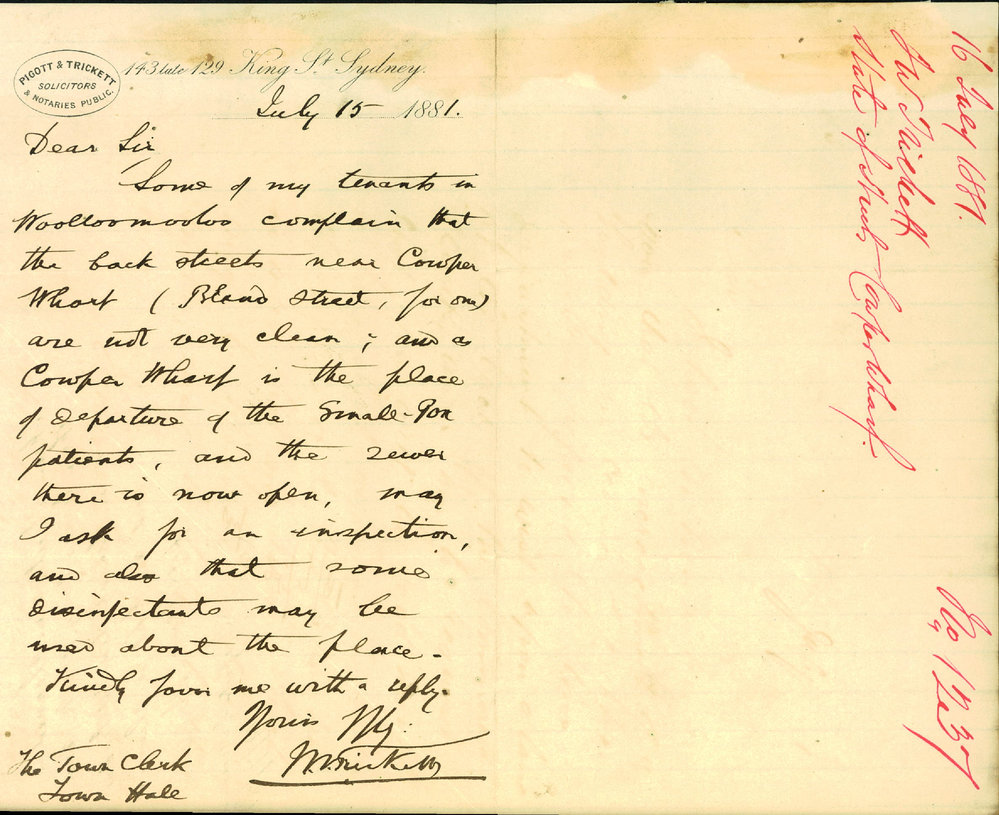 PIGOTT & TRICKETT
SOLICITORS
& NOTARIES PUBLIC.
143 late 129 King St. Sydney.
July 15 1881.
Dear Sir
Some of my tenants in
Woolloomooloo complain that
the back streets near Cowper
Wharf (Bland Street, for one)
are not very clean; and as
Cowper Wharf is the place
of departure of the Small-Pox
patients, and the sewer
there is now open, may
I ask for an inspection,
and also that some
disinfectants may be
used about the place.
Kindly favor me with a reply.
Yours
Trickett
The Town Clerk
Town Hall
16 July 1881.
Trickett
State of Streets Cowper Wharf.